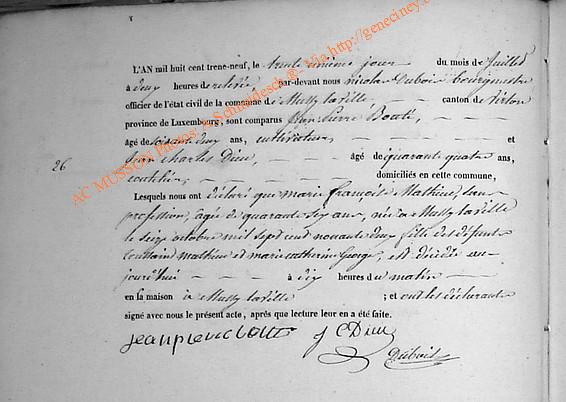 L'AN mil huit cent trene-neuf, le trente unième jour du mois de Juillet
à deux heures de relevée par-devant nous nicolas Dubois bourgmestre
officier de l'état civil de la commune de Mussy la ville, canton de Virton
province de Luxembourg, sont comparus Jean Pierre Bouté,
âgé de soixante deux ans, cultivateur, et
26
Jean Charles Dieu, âgé de quarante quatre ans,
domiciliés en cette commune,
Lesquels nous ont déclaré que marie françoise Mathieu, sans
profession, agée de quarante six ans, née à Mussy la ville
le seize octobre mil sept cent nonante deux fille des défunts
toussaint mathieu et marie catherine George, est décédée au-
jourd'hui à dix heures du matin
en sa maison à Mussy la ville ; et ont les déclarants
signé avec nous le présent acte, après que lecture leur en a été faite.
jeanpierre J C Dieu
Dubois
AC MUSSON Photos P. Schmadesch ® - Via http://geneciney.